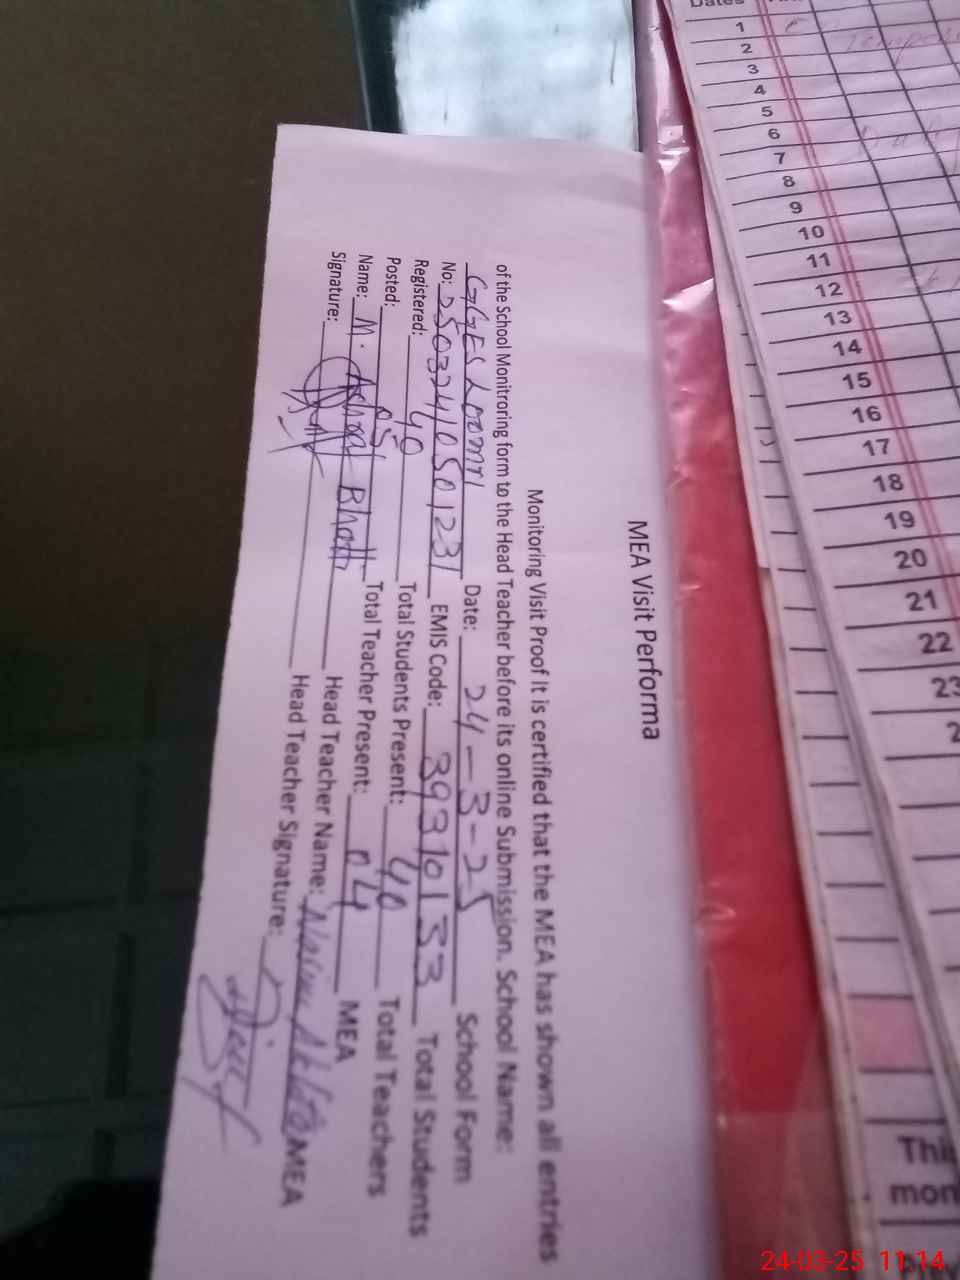 MEA Visit Performa
Monitoring Visit Proof it is certified that the MEA has shown all entries
of the School Monitroring form to the Head Teacher before its online Submission. School Name:
GGES Loomri Date: 24-3-25 School Form
No: EMIS Code: 39310133 Total Students
Registered: 40 Total Students Present: 40 Total Teachers
Posted: 05 Total Teacher Present: 04 MEA
Name: M. Ashraf Bhatti Head Teacher Name: Akhtar MEA
Signature: Head Teacher Signature:
Dates
1
2
3
4
5
6
7
8
9
10
11
12
13
14
15
16
17
18
19
20
21
22
23
2
This
mon
24-03-25 11:14